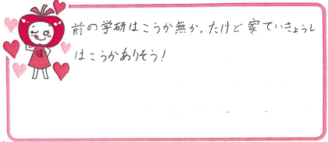 前の学研はこうか無か。たけど家ていきょうし
はこうかありそう!